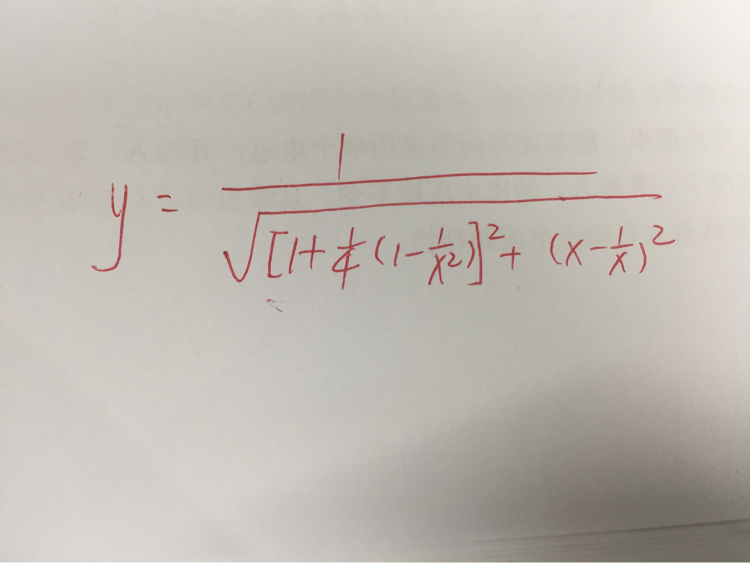 y = \frac{1}{\sqrt{[1+\frac{1}{4}(1-\frac{1}{x^2})]^2+(x-\frac{1}{x})^2}}